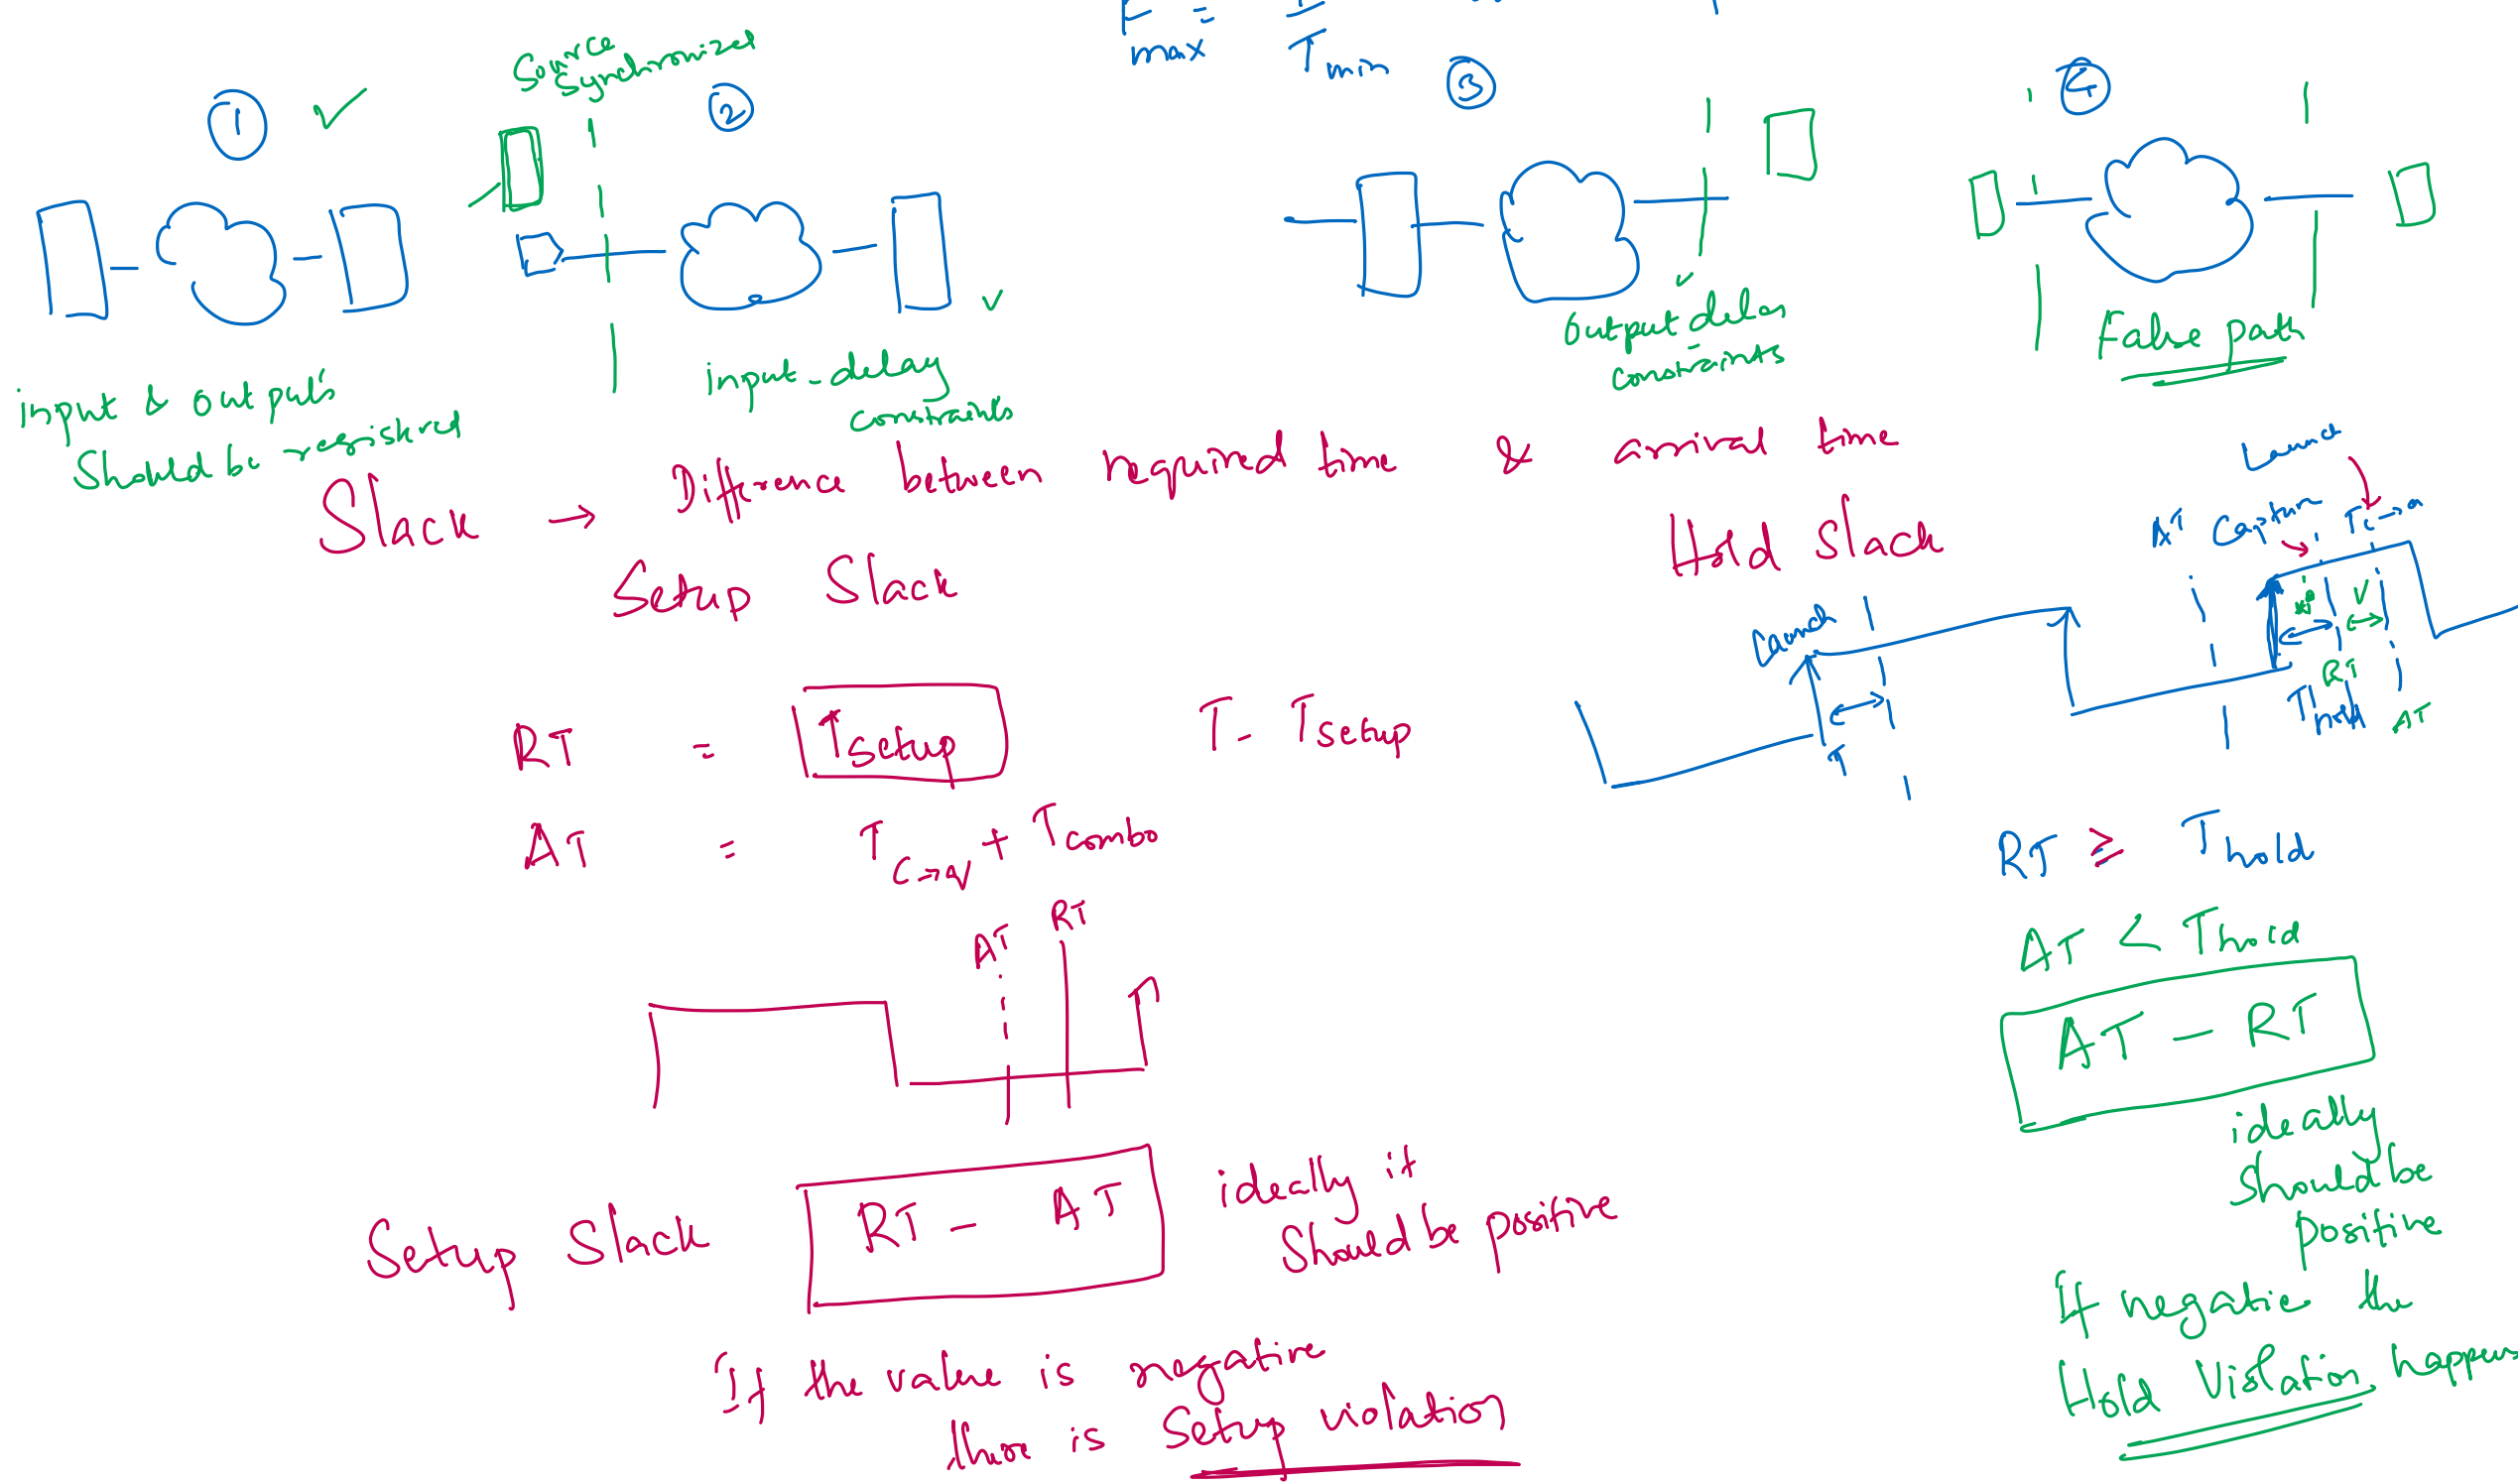 Fmax =
Tmin
Source
Synchronized
1
2
3
4
input & output
Should be registered
input_delay
constraints
output_delay
constraints
False path
Slack → Difference between Required time & arrival time
Setup Slack
Hold Slack
Launch
Capture
Launch
Tc→q
RT
Thold
AT
RT = Tsetup T - Tsetup
AT = Tc→q + Tcombo
AT RT
RT ≥ Thold
AT < Thold
AT - RT
ideally
Should be
positive
If negative the
Hold Violation happens
Setup Slack RT - AT ideally it
Should be positive
If the value is negative
there is Setup violation